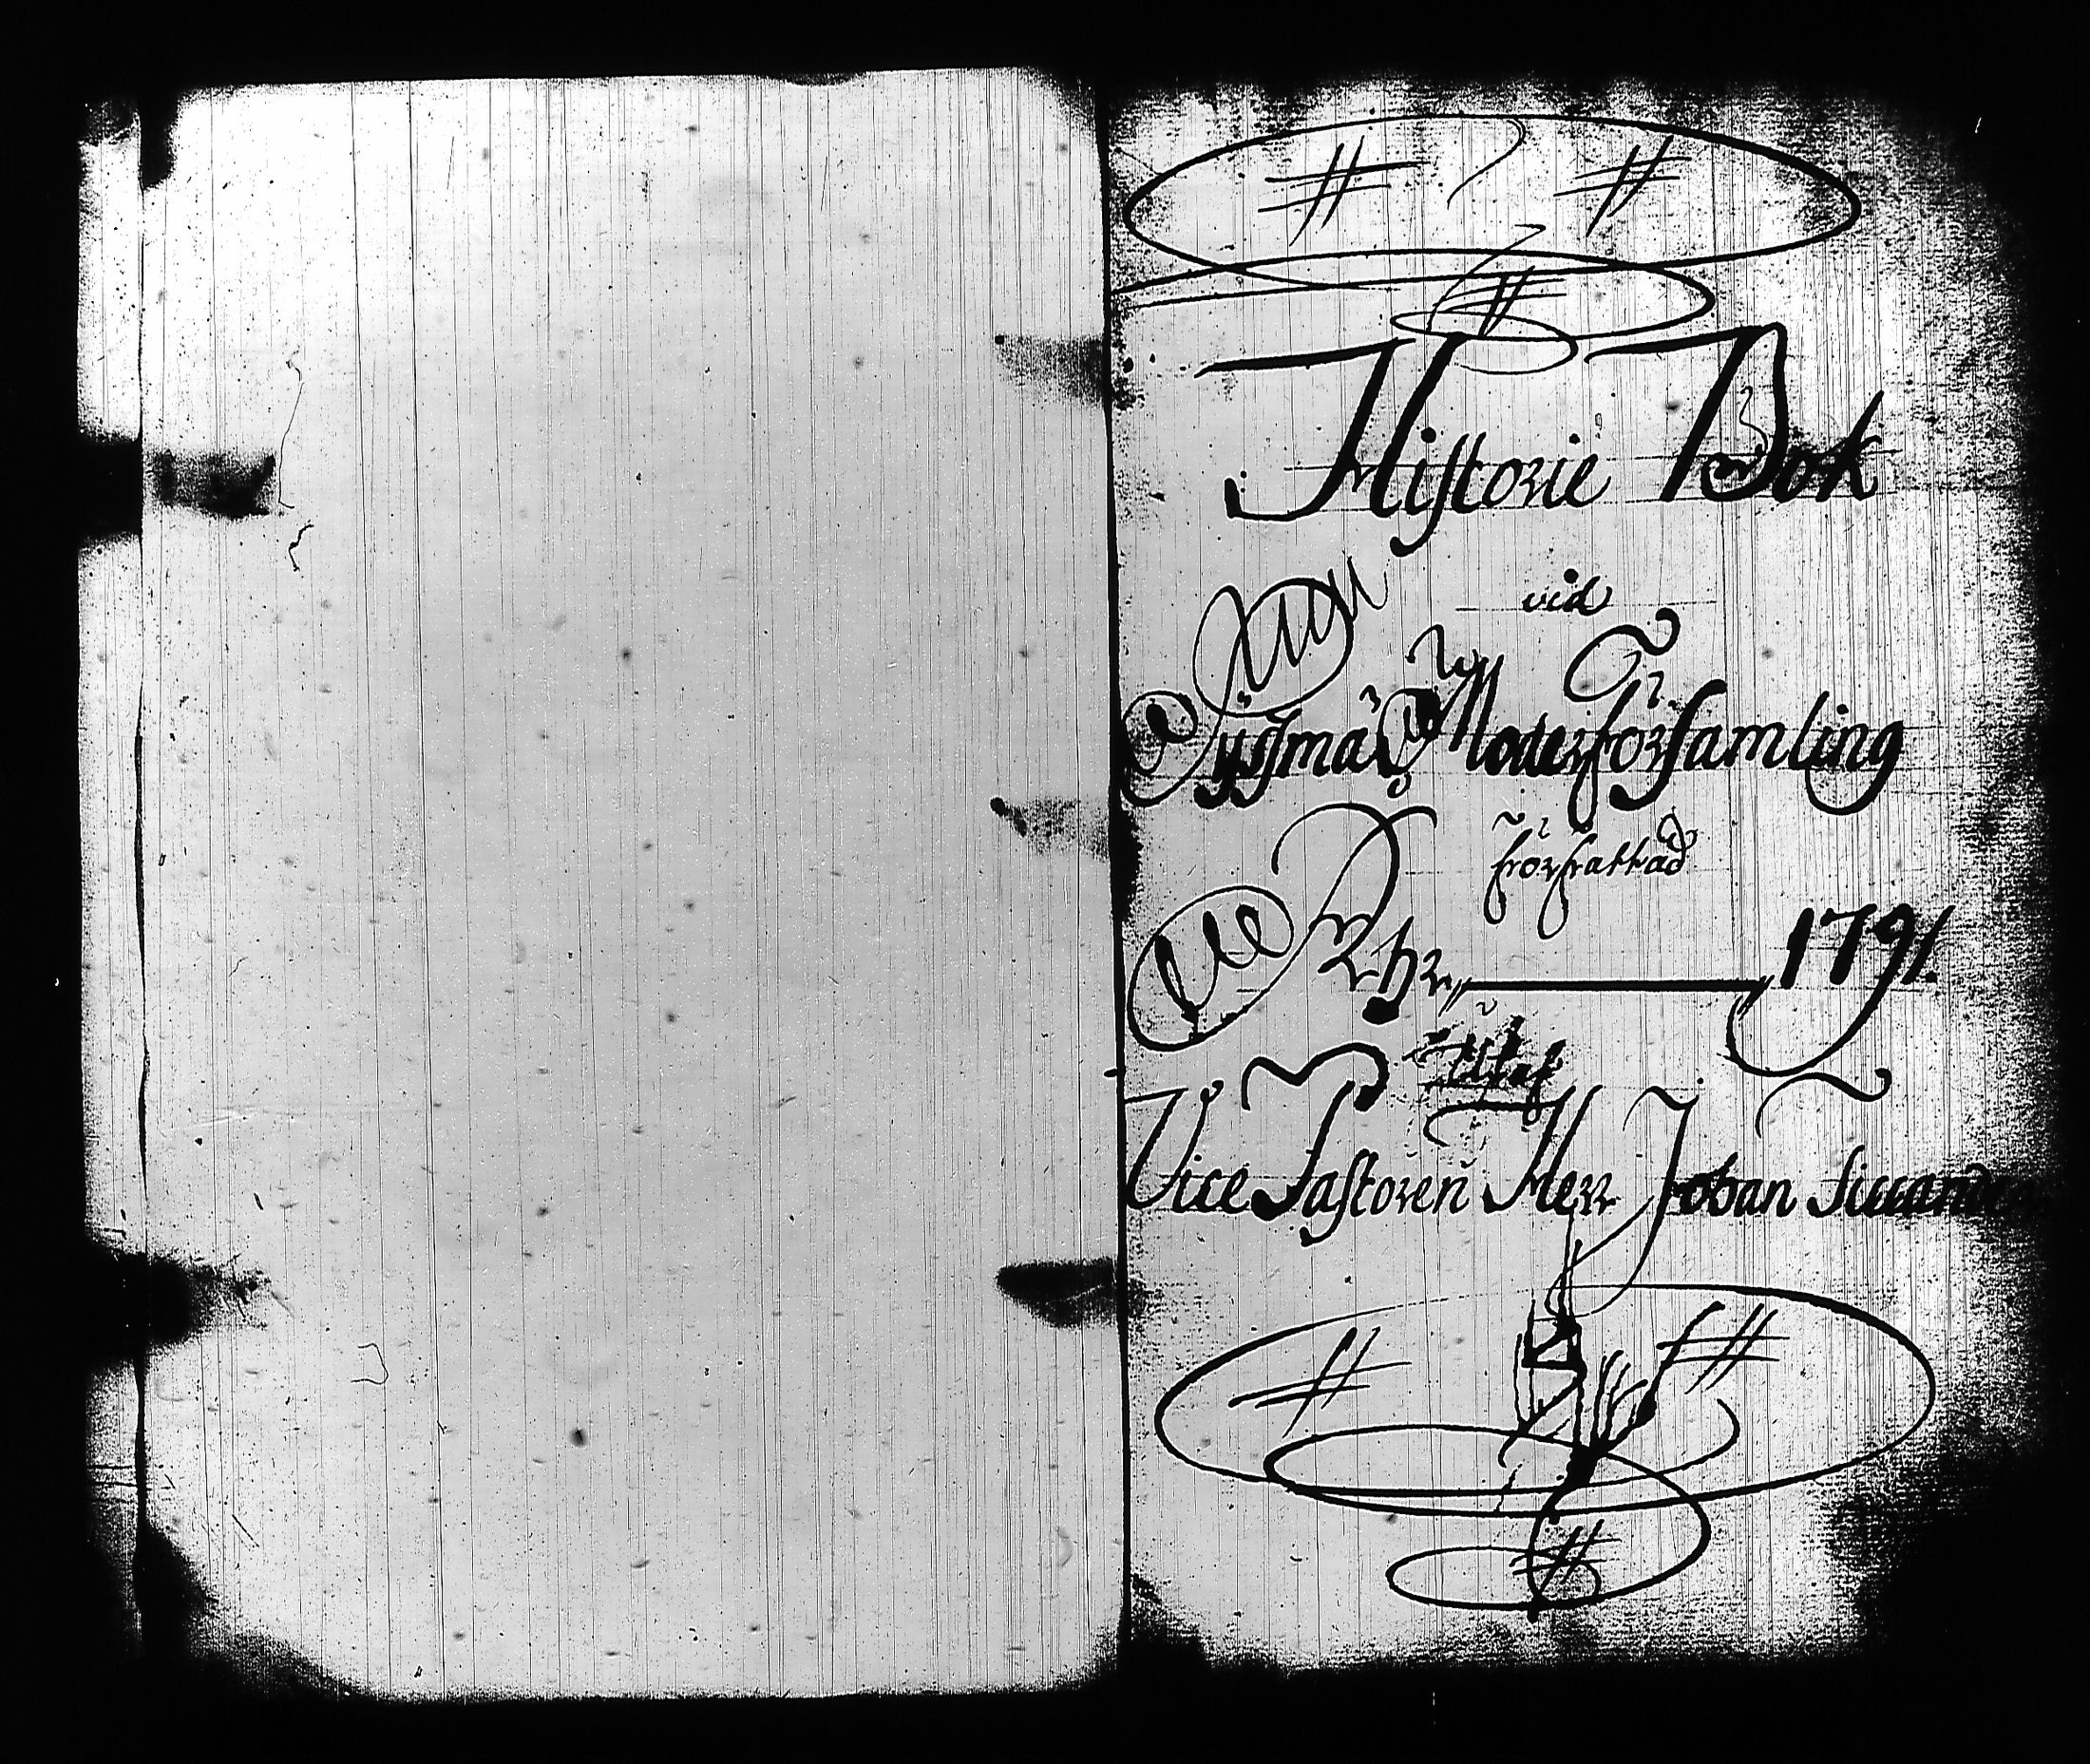 Historie Bok
vid
Sysmä Moderförsamling
författad
Åhr 1791.
utaf
Vice Pastoren Herr Johan